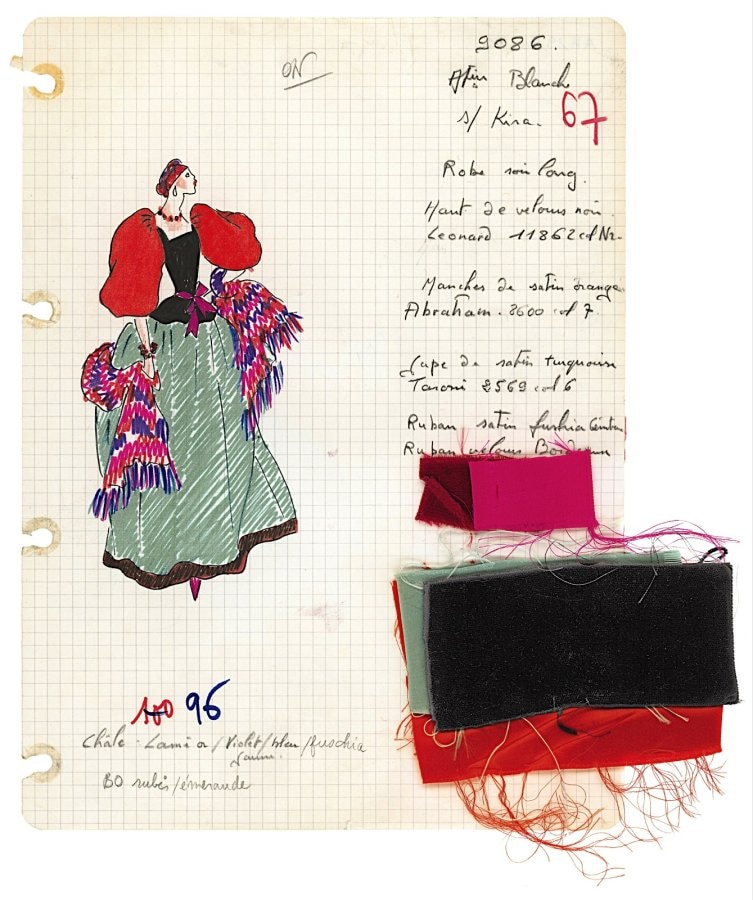 ON
9086.
Blanche
s/ Kira.
67
Robe soir long.
Haut de velours noir.
Leonard 11862 col Nr.
Manches de satin orange
Abraham. 3600 col 7.
Jupe de satin turquoise
Taroni 2569 col 6
Ruban satin fushia
Ruban velours Bordeaux
100 96
Châle : Lamé or / Violet / bleu / fuschia
jaune.
BO rubis / émeraude